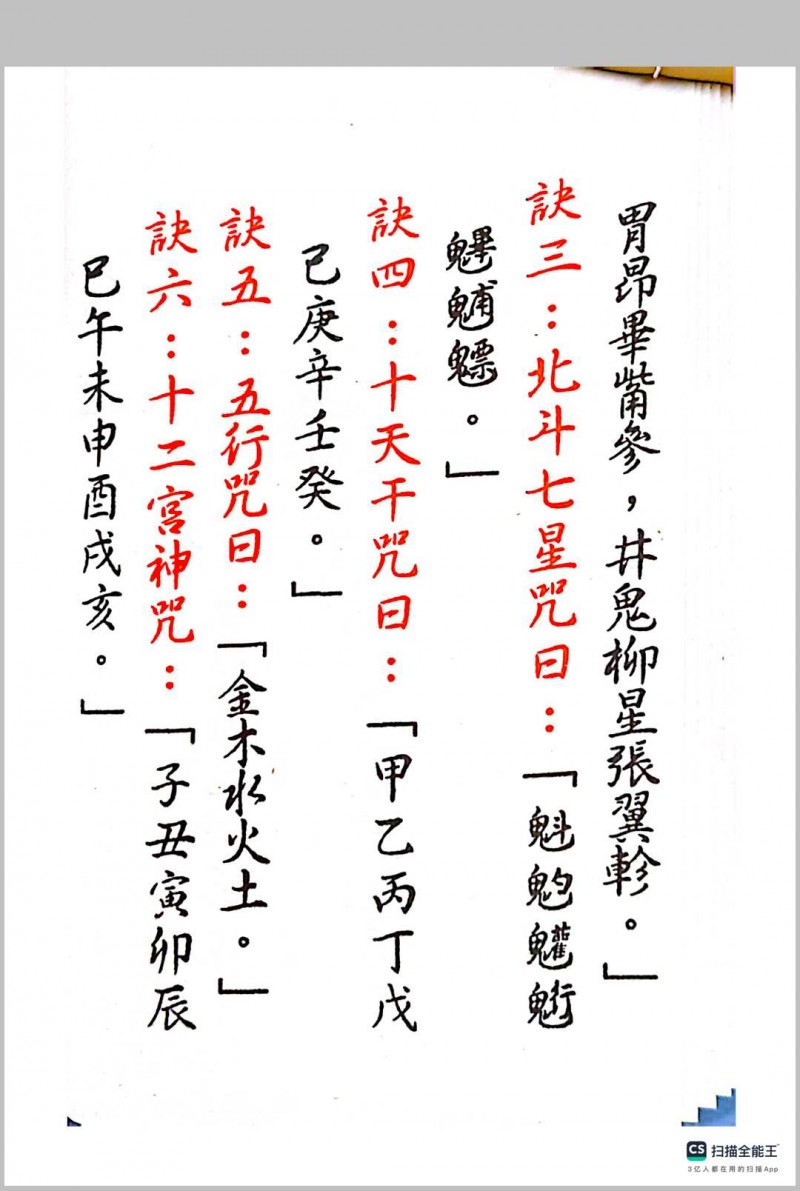 胃昂畢觜參，井鬼柳星張翼軫。」
訣三：北斗七星咒曰：「魁
魓魒。」
訣四：十天干咒曰：「甲乙丙丁戊
己庚辛壬癸。」
訣五：五行咒曰：「金木水火土。」
訣六：十二宮神咒：「子丑寅卯辰
巳午未申酉戌亥。」
CS 扫描全能王
3亿人都在用的扫描App